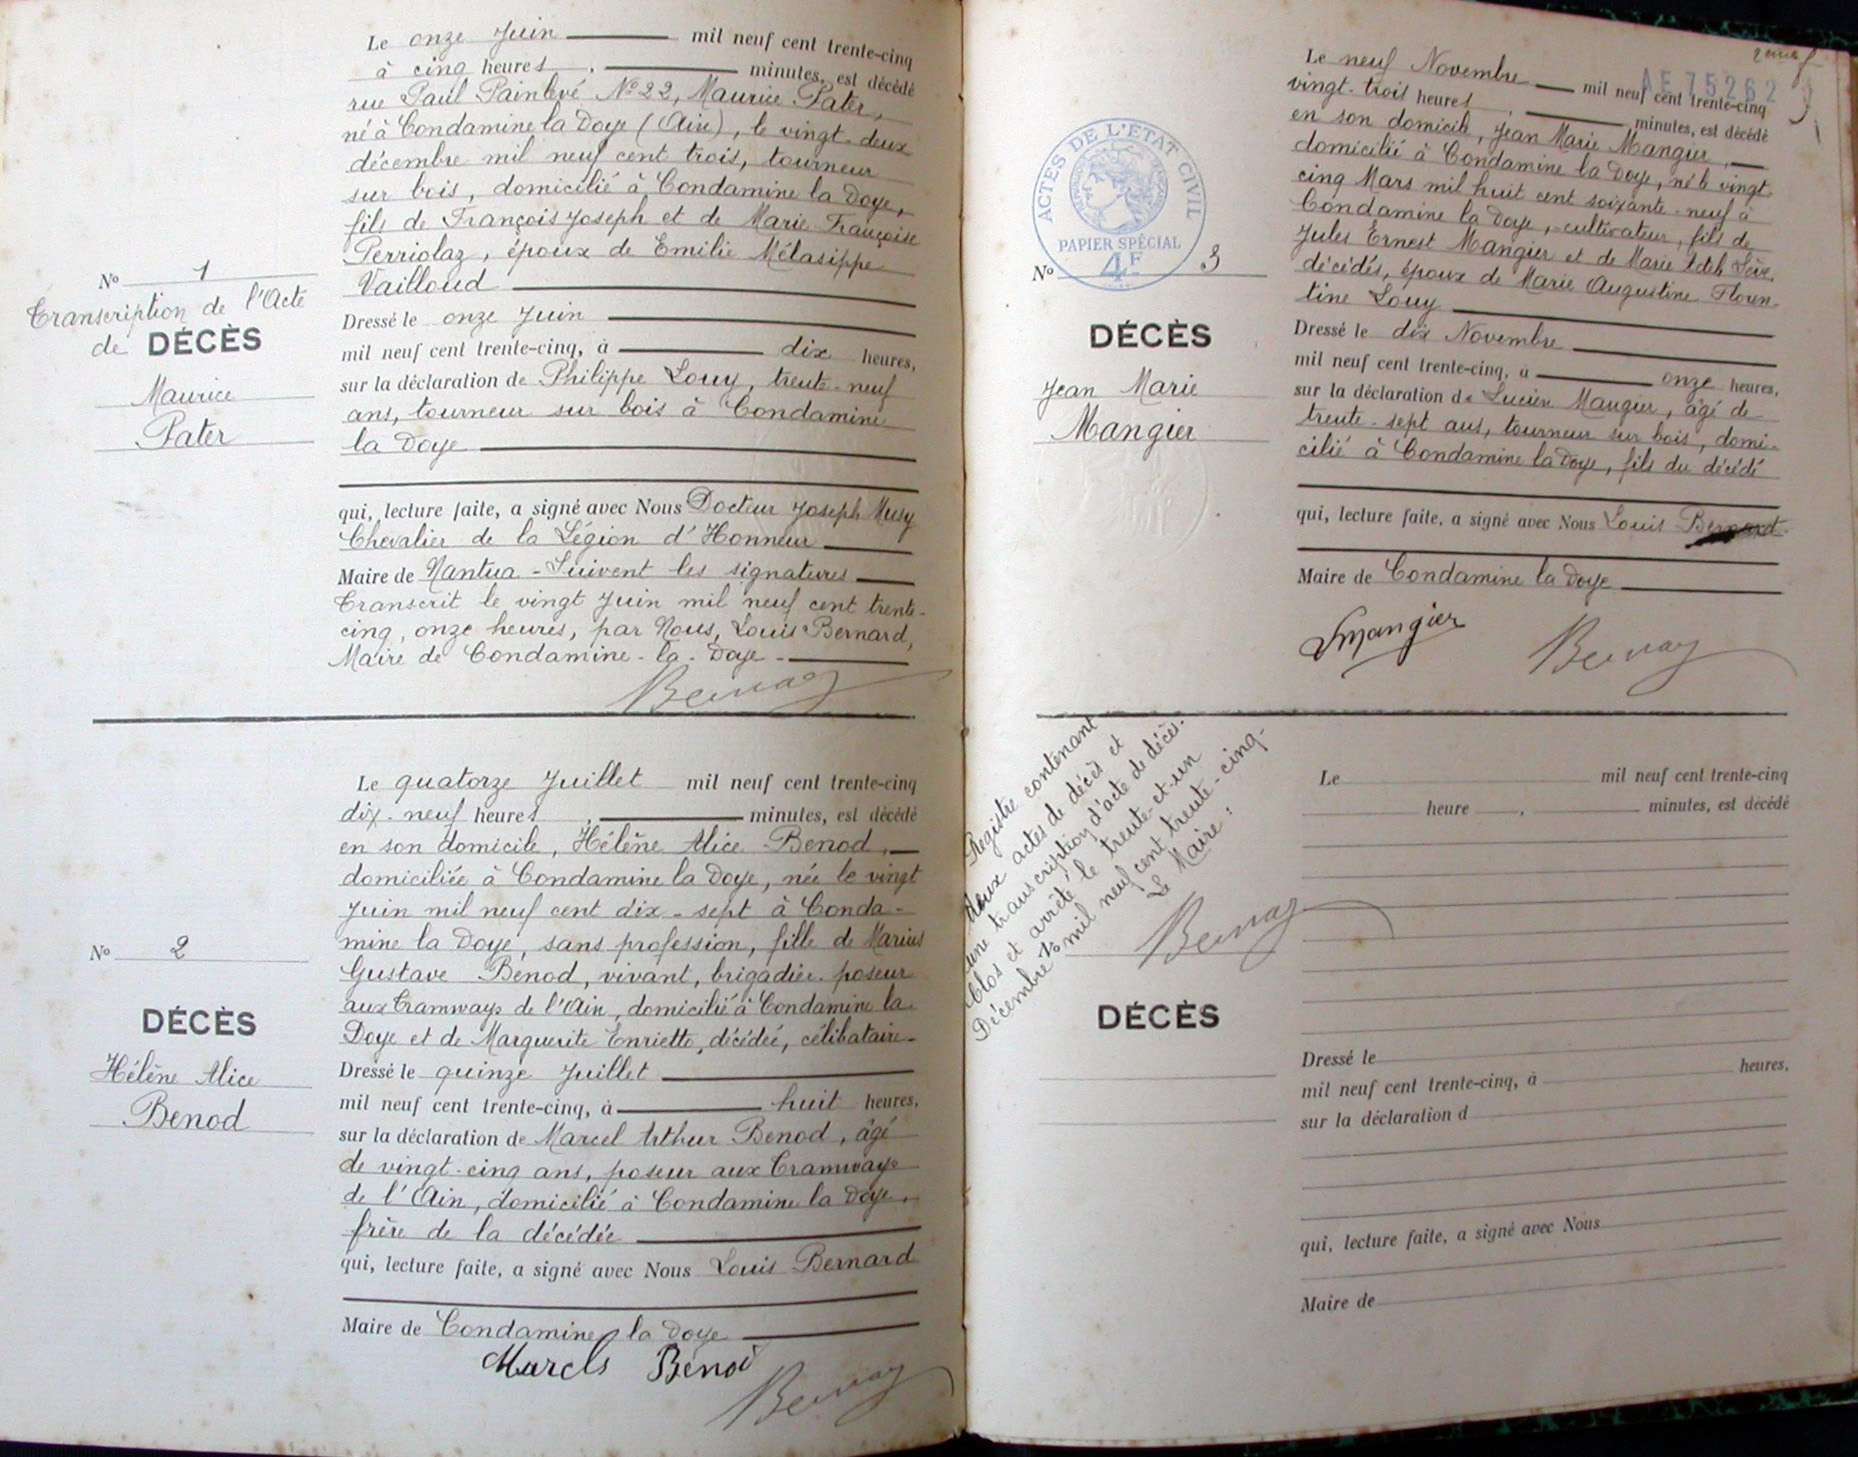 Le onze Juin mil neuf cent trente-cinq
à cinq heures, minutes, est décédé
rue Paul Painlevé No 22, Maurice Pater,
né à Condamine la Doye (Ain), le vingt-deux
décembre mil neuf cent trois, tourneur
sur bois, domicilié à Condamine la Doye,
fils de François Joseph et de Marie Françoise
Perriolaz, époux de Emilie Mélasippe
Vailloud
No 1
Transcription de l'Acte
de DÉCÈS
Maurice
Pater
Dressé le onze Juin
mil neuf cent trente-cinq, à dix heures,
sur la déclaration de Philippe Louy, trente-neuf
ans, tourneur sur bois à Condamine
la Doye
qui, lecture faite, a signé avec Nous Docteur Joseph Musy
Chevalier de la Légion d'Honneur
Maire de Nantua - Suivent les signatures
Transcrit le vingt Juin mil neuf cent trente-
cinq, onze heures, par Nous, Louis Bernard,
Maire de Condamine-la-Doye-
Le quatorze Juillet mil neuf cent trente-cinq
dix-neuf heures, minutes, est décédé
en son domicile, Hélène Alice Benod,
domiciliée à Condamine la Doye, née le vingt
Juin mil neuf cent dix-sept à Conda-
mine la Doye, sans profession, fille de Marius
Gustave Benod, vivant, brigadier-poseur
aux Tramways de l'Ain, domicilié à Condamine la
Doye et de Marguerite Enriette, décédée, célibataire-
No 2
DÉCÈS
Hélène Alice
Benod
Dressé le quinze Juillet
mil neuf cent trente-cinq, à huit heures,
sur la déclaration de Marcel Arthur Benod, âgé
de vingt-cinq ans, poseur aux Tramways
de l'Ain, domicilié à Condamine la Doye,
frère de la décédée
qui, lecture faite, a signé avec Nous Louis Bernard
Maire de Condamine la Doye
Benod
AE 75262
Le neuf Novembre mil neuf cent trente-cinq
vingt-trois heures, minutes, est décédé
en son domicile, Jean Marie Mangier,
domicilié à Condamine la Doye, né le vingt
cinq Mars mil huit cent soixante-neuf à
Condamine la Doye, cultivateur, fils de
Jules Ernest Mangier et de Marie Adèle
décédés, époux de Marie Augustine Floren-
tine Louy
ACTES DE L'ÉTAT CIVIL
PAPIER SPÉCIAL
4F
No 3
DÉCÈS
Jean Marie
Mangier
Dressé le dix Novembre
mil neuf cent trente-cinq, à onze heures,
sur la déclaration de Lucien Mangier, âgé de
trente-sept ans, tourneur sur bois, domi-
cilié à Condamine la Doye, fils du décédé
qui, lecture faite, a signé avec Nous Louis Bernard
Maire de Condamine la Doye
Mangier
Registre contenant
deux actes de décès et
une transcription d'acte de décès.
Clos et arrêté le trente-et-un
Décembre mil neuf cent trente-cinq-
Le Maire:
DÉCÈS
Le mil neuf cent trente-cinq
heure, minutes, est décédé
Dressé le
mil neuf cent trente-cinq, à heures,
sur la déclaration d
qui, lecture faite, a signé avec Nous
Maire de